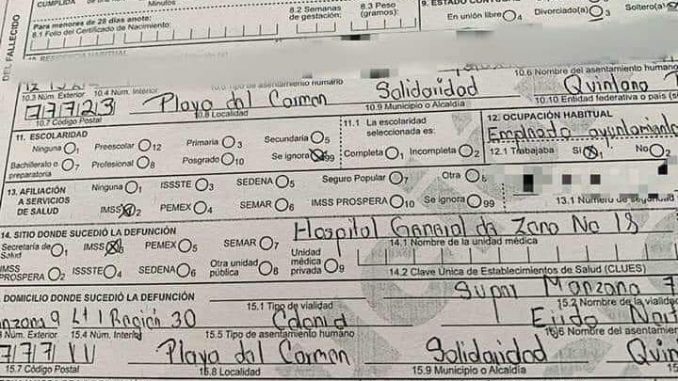 CUMPLIDA
Minutos
Para menores de 28 dias anote:
8.1 Folio del Certificado de Nacimiento
8.2 Semanas de gestación:
8.3 Peso (gramos):
En unión libre 4 Divorciado(a) 3 Soltero(a)
DEL FALLECIDO
10.3 Núm. Exterior 10.4 Núm. Interior 10.6 Nombre del asentamiento humano
77723 Playa del Carmen Solidaridad Quintana
10.7 Código Postal 10.8 Localidad 10.9 Municipio o Alcaldía 10.10 Entidad federativa o país
11. ESCOLARIDAD
Ninguna 1 Preescolar 12 Primaria 3 Secundaria 5
Bachillerato o preparatoria 7 Profesional 8 Posgrado 10 Se ignora 99
11.1 La escolaridad seleccionada es:
Completa 1 Incompleta 2
12. OCUPACIÓN HABITUAL
Empleado ayuntamiento
12.1 Trabajaba Sí 1 No 2
13. AFILIACIÓN A SERVICIOS DE SALUD
Ninguna 1 ISSSTE 3 SEDENA 5 Seguro Popular 7 Otra 8
IMSS 2 PEMEX 4 SEMAR 6 IMSS PROSPERA 10 Se ignora 99
13.1 Número de seguridad
14. SITIO DONDE SUCEDIÓ LA DEFUNCIÓN
Secretaría de Salud 1 IMSS 3 PEMEX 5 SEMAR 7 Unidad médica privada 9
IMSS PROSPERA 2 ISSSTE 4 SEDENA 6 Otra unidad pública 8
Hospital General de Zona No 18
14.1 Nombre de la unidad médica
14.2 Clave Única de Establecimientos de Salud (CLUES)
DOMICILIO DONDE SUCEDIÓ LA DEFUNCIÓN
Super Manzana 7
15.1 Tipo de vialidad 15.2 Nombre de la vialidad
Región 30 Colonia Ejido
Núm. Exterior 15.4 Núm. Interior 15.5 Tipo de asentamiento humano 15.6 Nombre del asentamiento
Playa del Carmen Solidaridad
15.7 Código Postal 15.8 Localidad 15.9 Municipio o Alcaldía